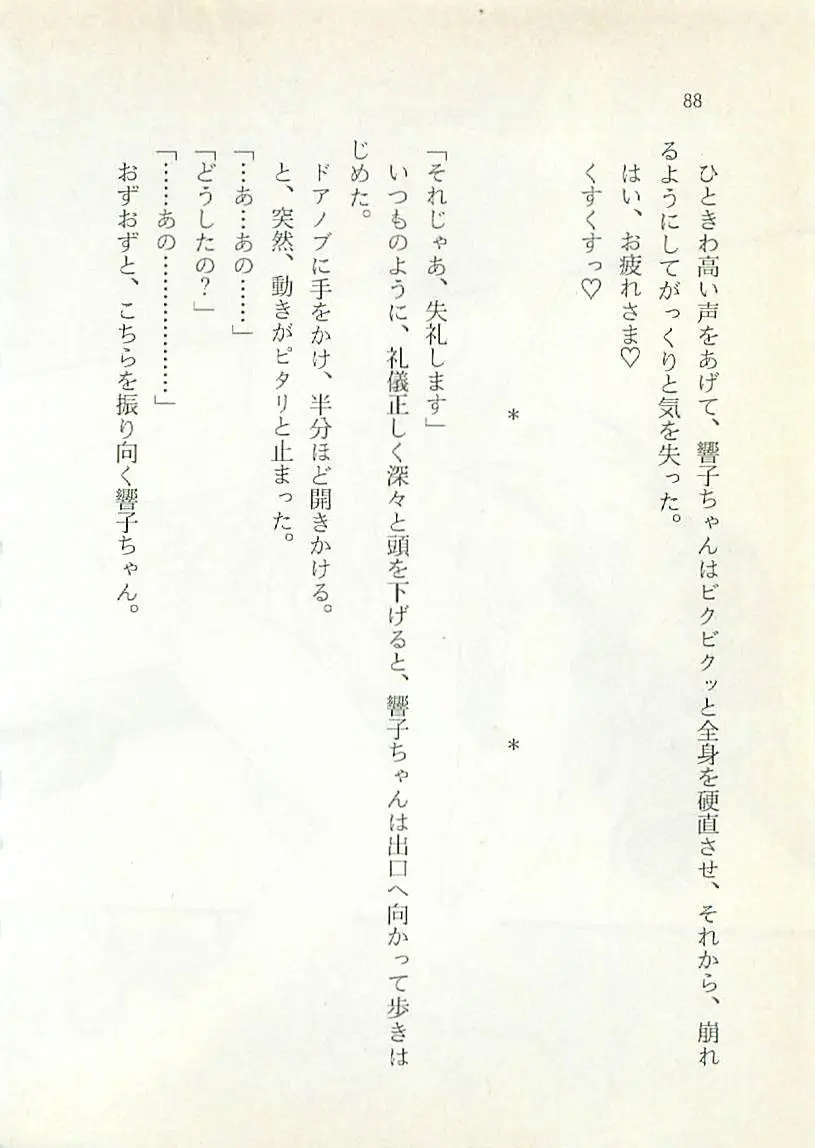 88
ひときわ高い声をあげて、響子ちゃんはビクビクッと全身を硬直させ、それから、崩れ
るようにしてがっくりと気を失った。
はい、お疲れさま♡
くすくすっ♡
＊　＊
「それじゃあ、失礼します」
いつものように、礼儀正しく深々と頭を下げると、響子ちゃんは出口へ向かって歩きは
じめた。
ドアノブに手をかけ、半分ほど開きかける。
と、突然、動きがピタリと止まった。
「…あ…あの……」
「どうしたの？」
「……あの………………」
おずおずと、こちらを振り向く響子ちゃん。